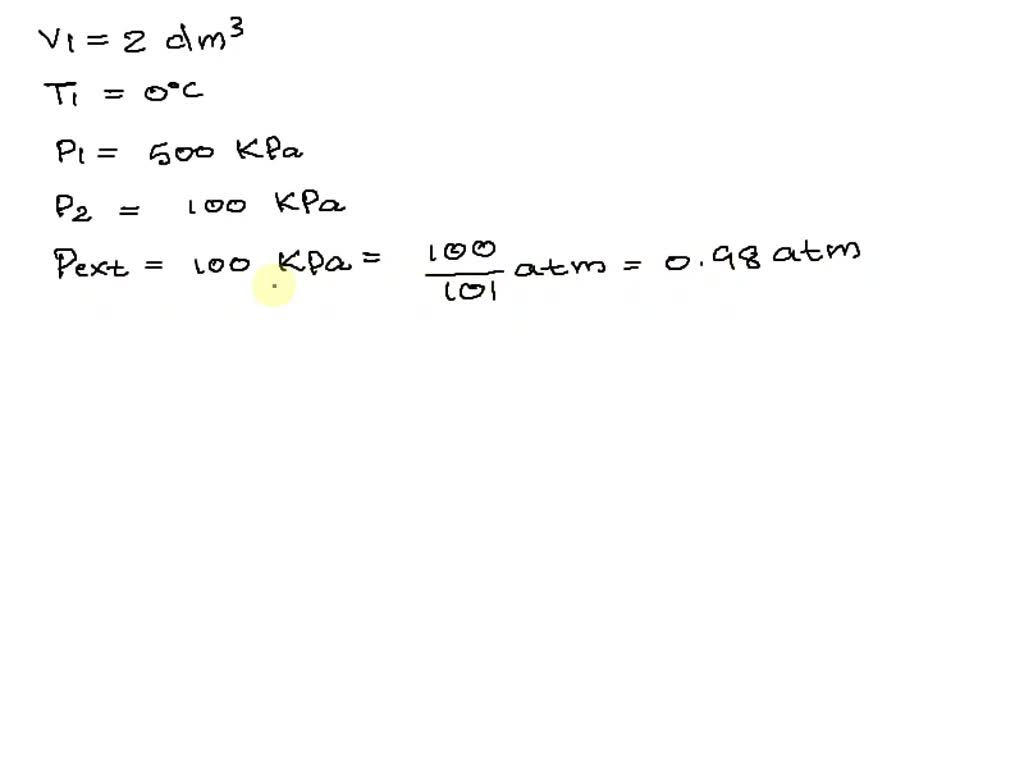 V1 = 2 dm³
T1 = 0°C
P1 = 500 KPa
P2 = 100 KPa
Pext = 100 KPa = 100/101 atm = 0.98 atm